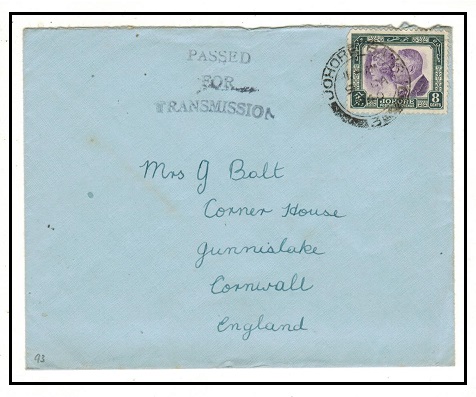 PASSED
FOR
TRANSMISSION
JOHORE
JOHORE
8
CENTS
Mrs G Balt
Corner House
Gunnislake
Cornwall
England
93